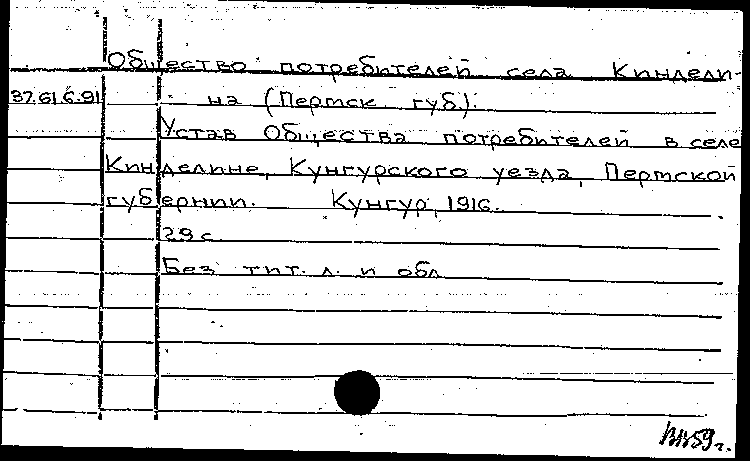 Общество потребителей села Киндели-
37.61.6.91 на (Пермск. губ.).
Устав Общества потребителей в селе
Кинделине, Кунгурского уезда, Пермской
губернии. Кунгур, 1916.
29 с.
Без тит. л. и обл.
59 г.